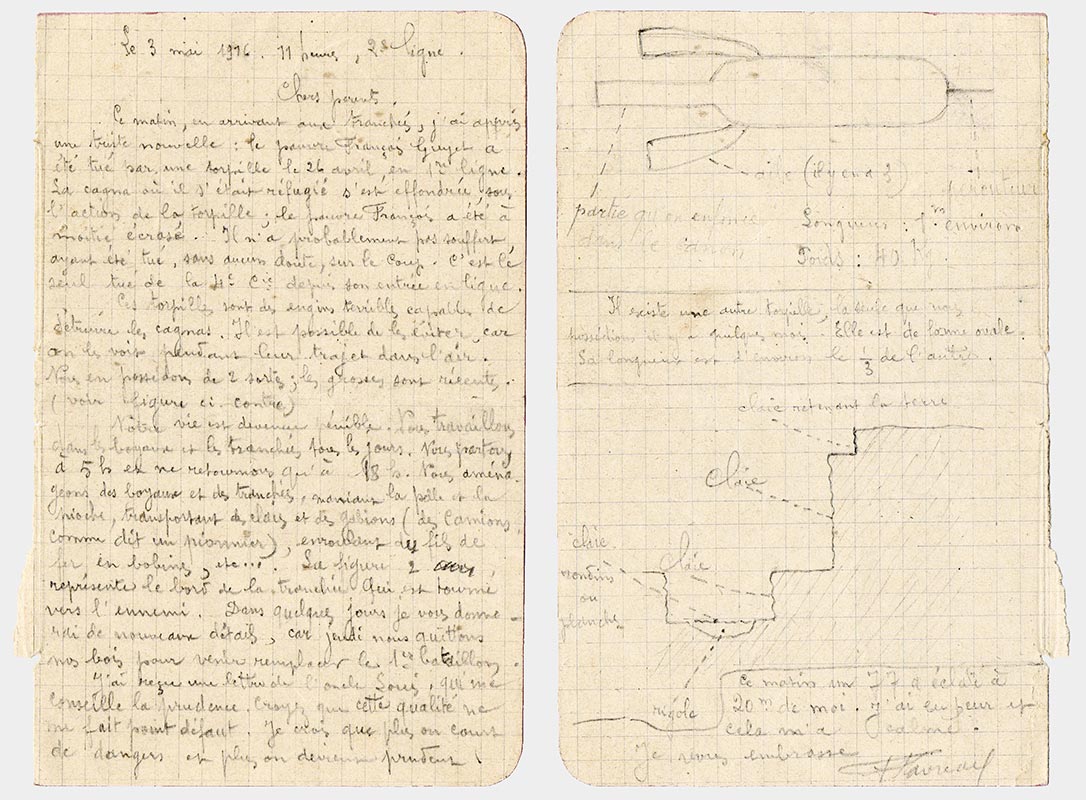 Le 3 mai 1916. 11 heures, 2e ligne.
Chers parents,
Ce matin, en arrivant aux tranchés, j'ai appris
une triste nouvelle : le pauvre François Guyet a
été tué par une torpille le 26 avril en 1re ligne.
La cagna où il s'était réfugié s'est effondrée sous
l'action de la torpille ; le pauvre François a été à
moitié écrasé. Il n'a probablement pas souffert,
ayant été tué, sans aucun doute, sur le coup. C'est le
seul tué de la 4e Cie depuis son entrée en ligne.
Ces torpilles sont des engins terribles capables de
détruire les cagnas. Il est possible de les éviter, car
on les voit pendant leur trajet dans l'air.
Nous en possédons de 2 sortes ; les grosses sont récentes.
(voir figure ci-contre)
Notre vie est devenue pénible. Nous travaillons
dans les boyaux et les tranchées tous les jours. Nous partons
à 5 h et ne retournons qu'à 18 h. Nous aména-
geons des boyaux et des tranchées, maniant la pelle et la
pioche, transportant des claies et des gabions (des camions
comme dit un pionnier), enroulant du fils de
fer en bobines, etc... La figure 2
représente le bord de la tranchée qui est tourné
vers l'ennemi. Dans quelques jours je vous donne-
rai de nouveaux détails, car jeudi nous quittons
nos bois pour venir remplacer le 1er bataillon.
J'ai reçu une lettre de l'oncle Louis, qui me
conseille la prudence. Croyez que cette qualité ne
me fait point défaut. Je crois que plus on court
de dangers et plus on devient prudent.
aile (il y en a 3)
percuteur
partie qu'on enfonce
dans le canon
Longueur : 1m environ
Poids : 40 kg.
Il existe une autre torpille, la seule que nous
possédions il y a quelques mois. Elle est de forme ovale.
Sa longueur est d'environ le 1/3 de l'autre.
claie retenant la terre
Claie
claie
Claie
rondins
ou
planches
rigole
Ce matin un 77 a éclaté à
20m de moi. J'ai eu peur et
cela m'a
Je vous embrasse